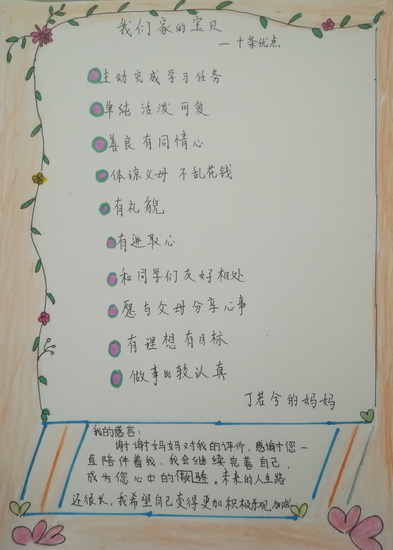 我们家的宝贝
一十条优点
主动完成学习任务
单纯 活泼 可爱
善良 有同情心
体谅父母 不乱花钱
有礼貌
有进取心
和同学们友好相处
愿与父母分享心事
有理想有目标
做事比较认真
丁若兮的妈妈
我的感言：
谢谢妈妈对我的评价，感谢您一
直陪伴着我，我会继续完善自己，
成为您心中的 未来的人生路
还很长，我希望自己变得更加积极乐观，加油